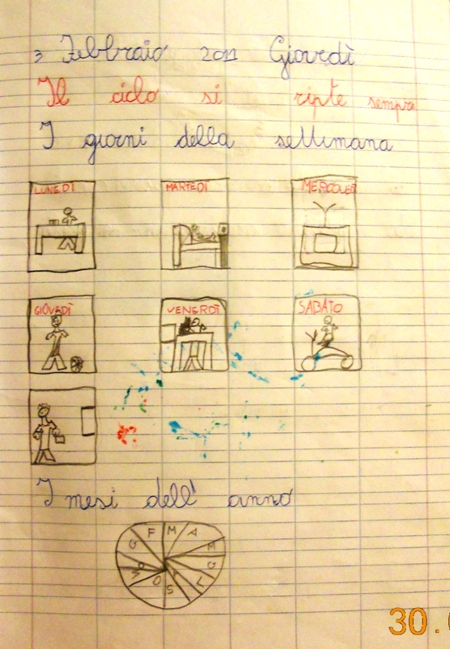 3 Febbraio 2011 Giovedì
Il ciclo si ripte sempre
I giorni della settimana
LUNEDÌ MARTEDÌ MERCOLEDÌ
GIOVEDÌ VENERDÌ SABATO
I mesi dell' anno
G F M A M G L A S O N D
30.